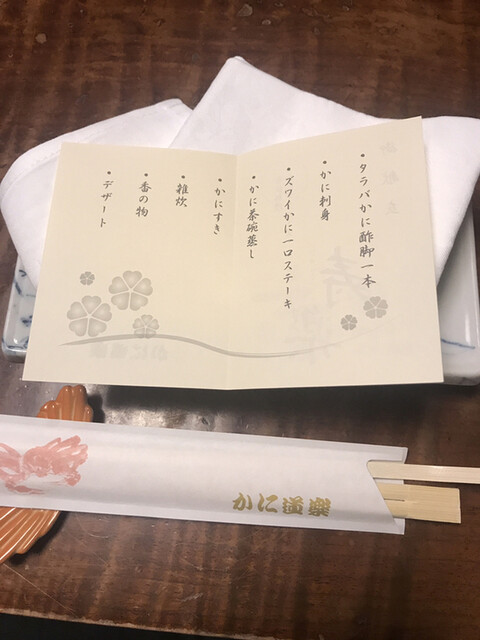 ・タラバかに酢脚一本
・かに刺身
・ズワイかに一口ステーキ
・かに茶碗蒸し
・かにすき
・雑炊
・香の物
・デザート
かに道楽